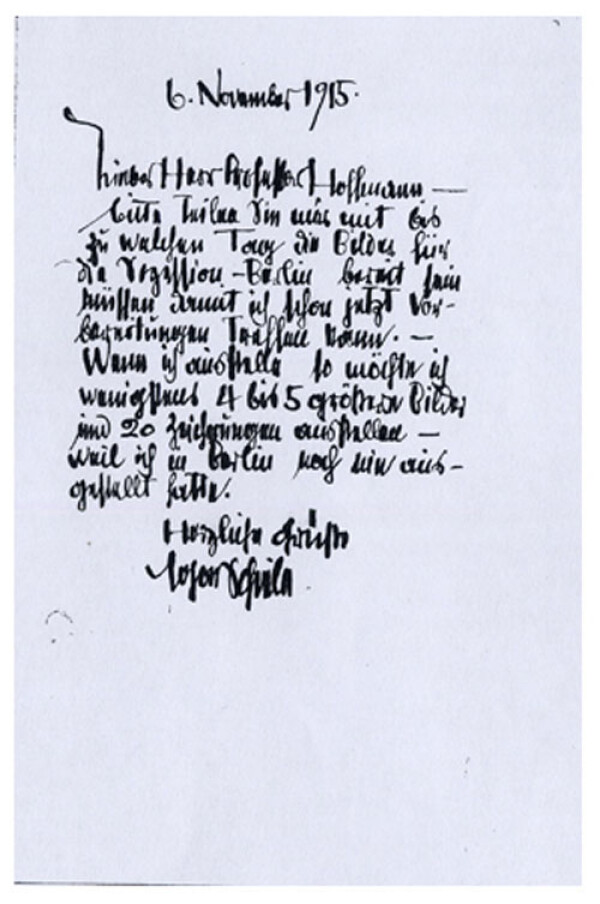 6. November 1915.
Lieber Herr Professor Hoffmann —
bitte teilen Sie mir mit bis
zu welchen Tag die Bilder für
die Sezession-Berlin bereit sein
müssen damit ich schon jetzt Vor-
bereitungen treffen kann. —
Wenn ich ausstelle so möchte ich
wenigstens 4 bis 5 größere Bilder
und 20 Zeichnungen ausstellen —
weil ich in Berlin noch nie aus-
gestellt hatte.
Herzliche Grüße
Schiele